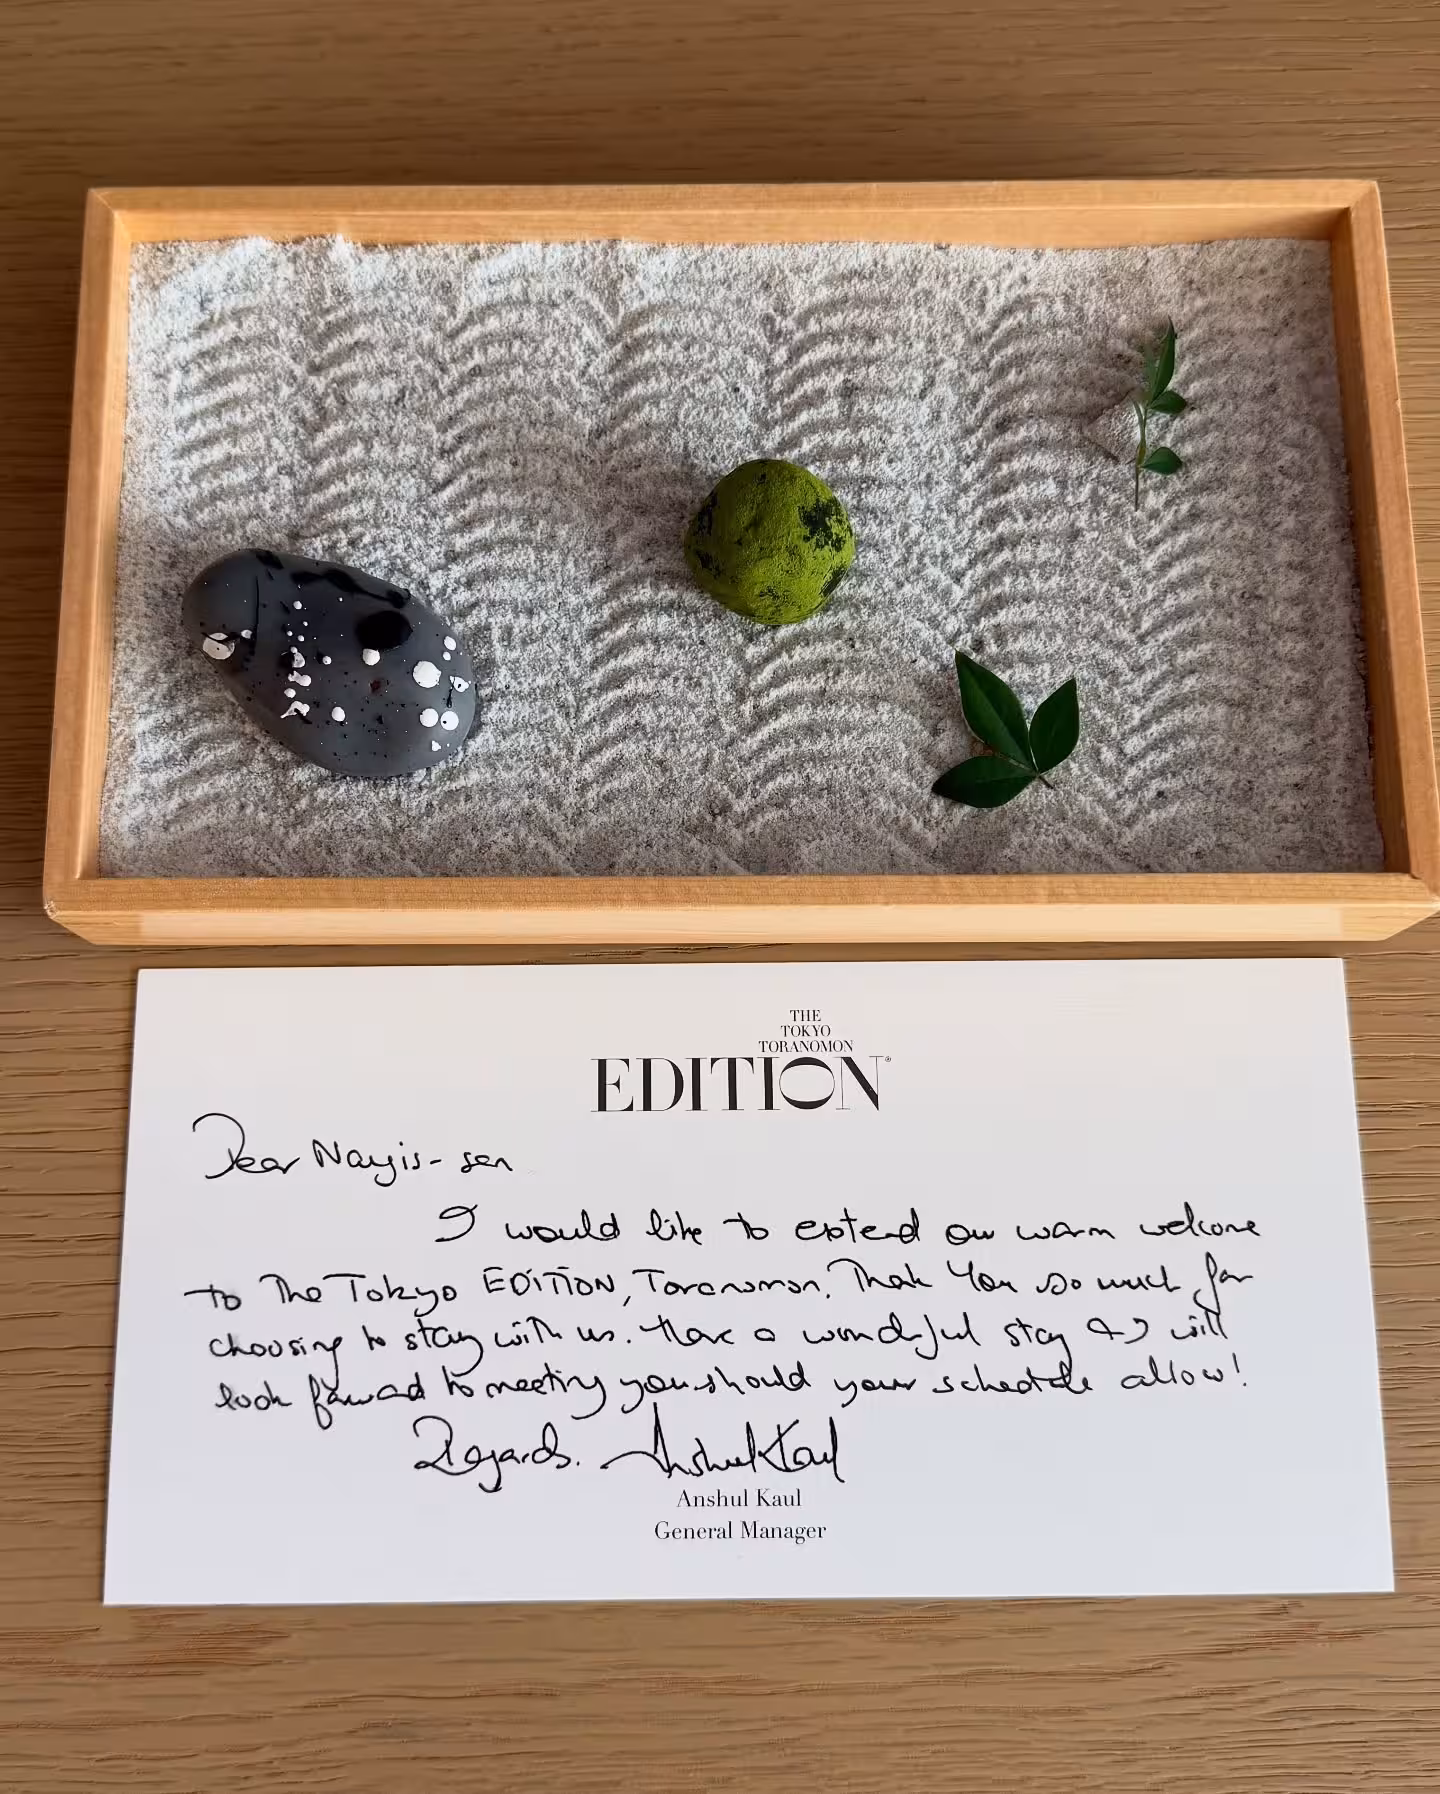 THE
TOKYO
TORANOMON
EDITION®
Dear Nayis-san
I would like to extend our warm welcome
to The Tokyo EDITION, Toranomon. Thank You so much for
choosing to stay with us. Have a wonderful stay & I will
look forward to meeting you should your schedule allow!
Regards. Anshul Kaul
Anshul Kaul
General Manager